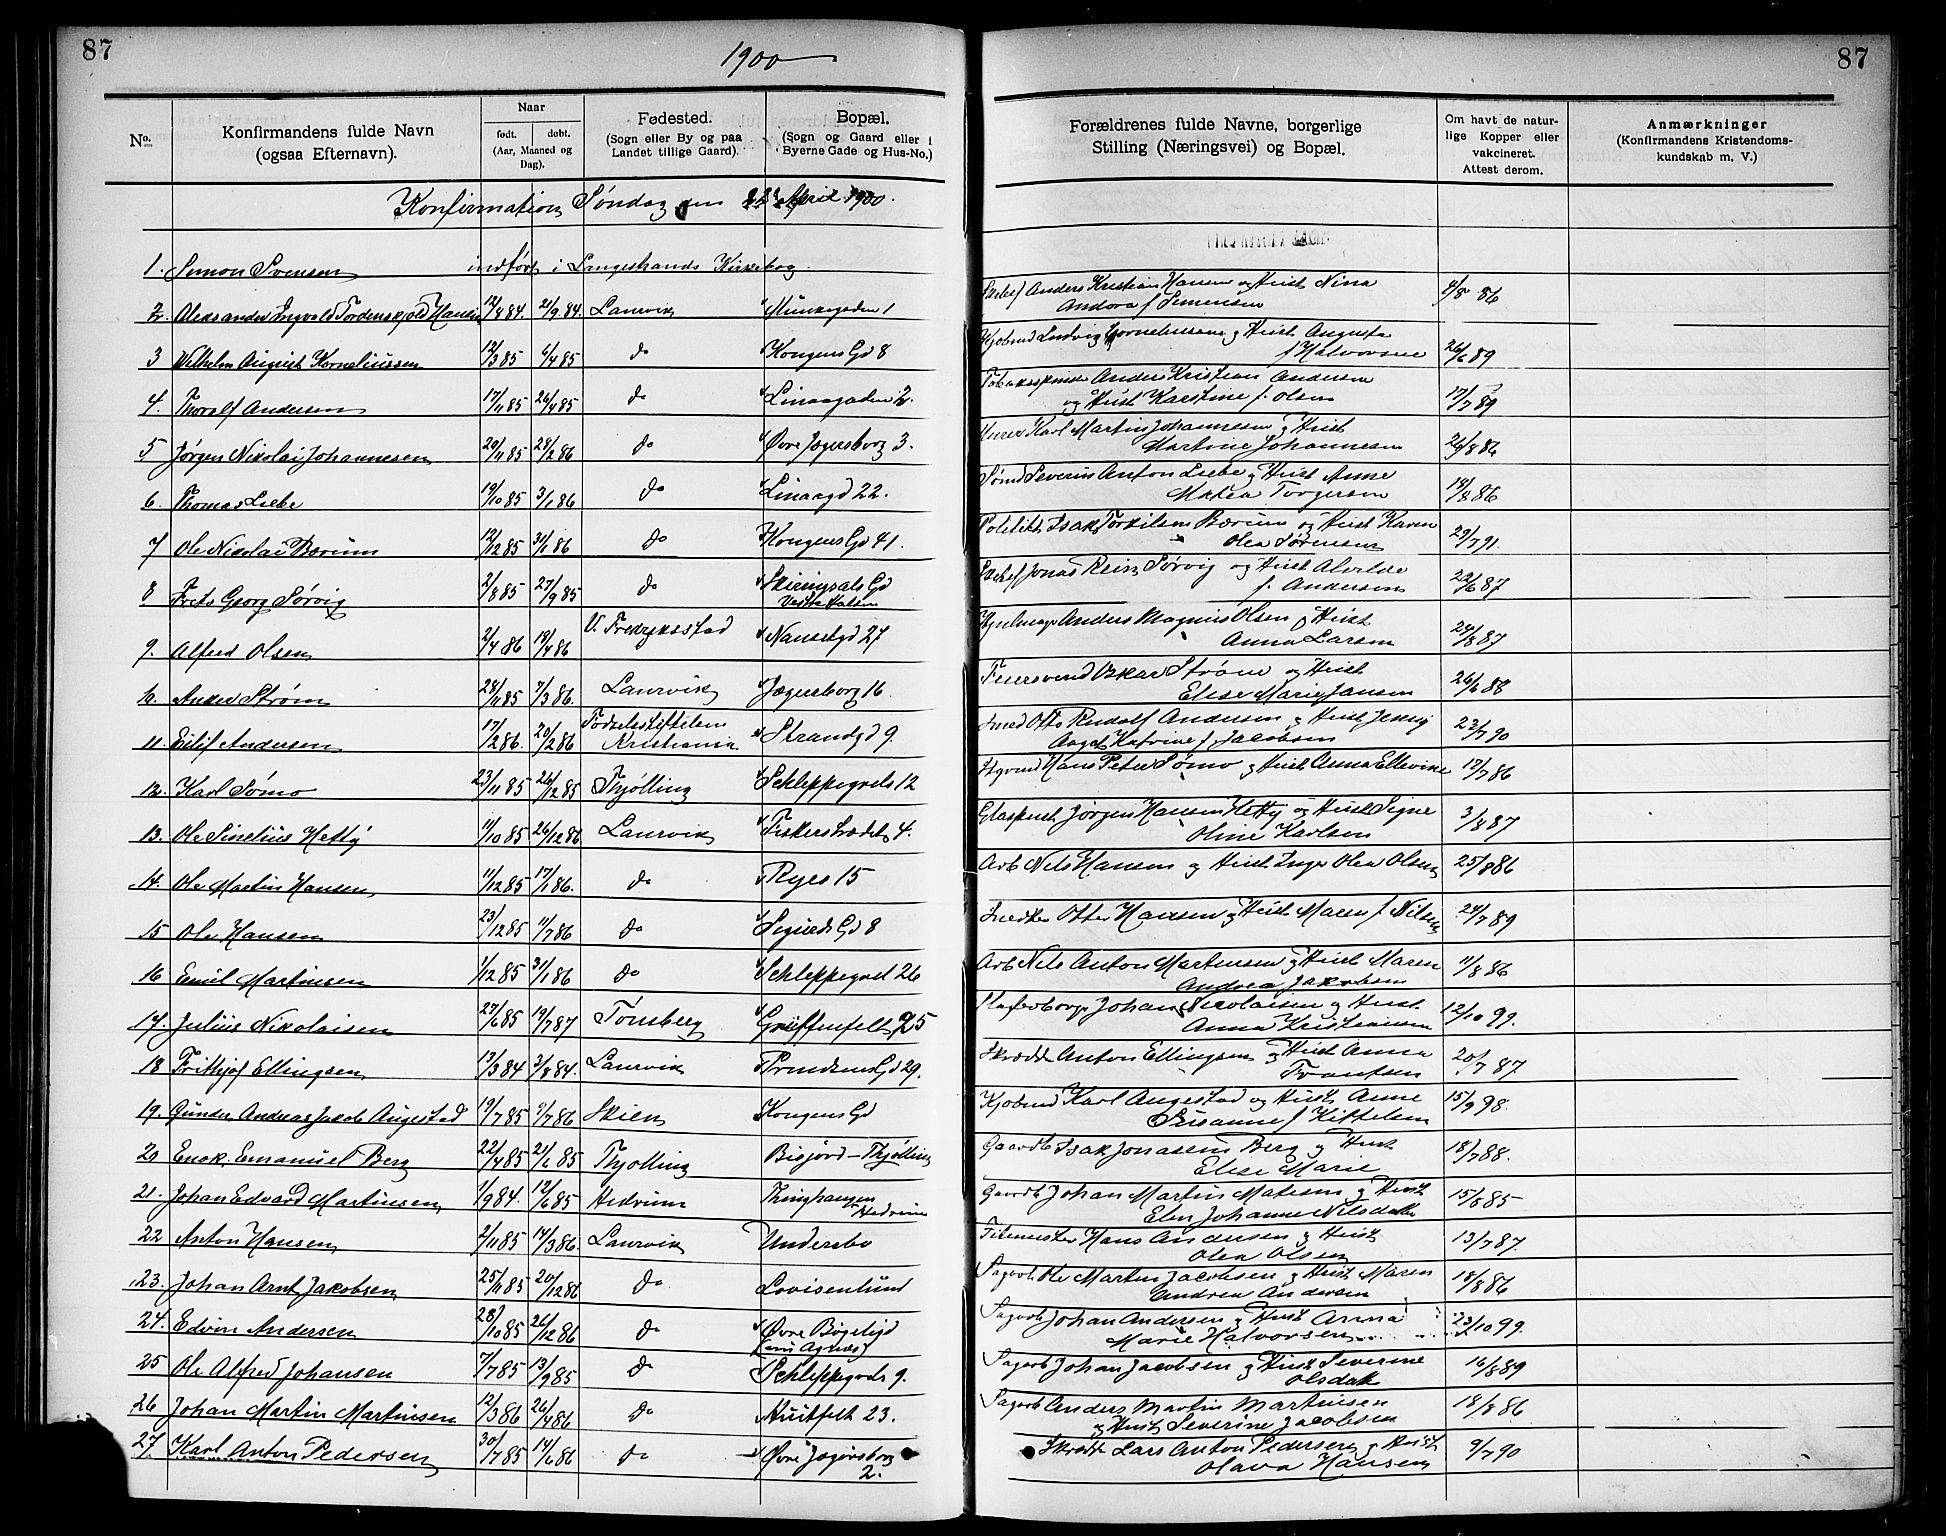 87
1900
No.
Konfirmandens fulde Navn
(ogsaa Efternavn).
Naar
født. døbt.
(Aar, Maaned og
Dag).
Fødested.
(Sogn eller By og paa
Landet tillige Gaard).
Bopæl.
(Sogn og Gaard eller i
Byerne Gade og Hus-No.)
Konfirmation Søndag den April 1900.
1. Simon Svensen indført i Langestrands Kirkebog.
2. Aleksander Ingvald Tordenskjold Hansen 12/8 84. 21/9 84. Laurvik Munkegaden 1
3 Wilhelm August Korneliussen 12/3 85 4/4 85 do Kongens Gd 8
4. Thoralf Andersen 17/4 85 26/4 85 do Linaagaden 2.
5 Jørgen Nikolai Johannesen 20/11 85 28/2 86 do Øvre Jegersborg 3.
6. Thomas Liebe 19/10 85 3/1 86 do Linaagd 22.
7 Ole Nikolai Bærum 12/12 85 31/1 86 do Kongens Gd 41.
8 Frits Georg Sørvig 2/8 85 27/9 85 do Skiringsals Gd
Vestre Halsen
9. Alfred Olsen 2/4 86 19/4 86 V. Fredriksstad Nansetgd 27
10. Anders Strøm 28/11 85 7/3 86. Laurvik Jegersborg 16
11. Eilif Andersen 17/2 86. 20/2 86 Fødselsstiftelsen
Kristiania Strandgd 9.
12. Karl Sømo 23/11 85 26/12 85 Thjølling Schleppegrels 12
13. Ole Sinelius Hetty 11/10 85 26/12 86 Laurvik Fiskerstrædet 4.
14. Ole Martin Hansen 11/12 85 17/1 86. do Ryes 15
15 Ole Hansen 23/12 85 11/7 86 do Sigurds Gd 8
16 Emil Martinsen 1/12 85 31/1 86 do Schleppegrel 26
17. Julius Nikolaisen 27/6 85 19/7 87 Tønsberg Griffenfelt 25
18 Frithjof Ellingsen 13/3 84 3/8 84. Laurvik Trondsens Gd 29.
19. Gunder Andreas Jacob Augestad 19/7 85 9/7 86 Skien Kongens Gd
20 Enok Emanuel Berg 22/4 85 21/6 85 Thjølling Bisjord - Thjølling
21. Johan Edvard Martinsen 1/9 84. 12/6 85 Hedrum Thinghaugen
Hedrum
22 Anton Hansen 2/11 85 14/3 86. Laurvik Undersbo
23. Johan Arnt Jakobsen 25/11 85 20/12 86 do Lovisenlund
24. Edvin Andersen 28/10 85 26/12 86 do Øvre Bøgeligd
25 Ole Alfred Johansen 7/7 85 13/9 85 do Schleppegrels 9.
26 Johan Martin Martinsen 12/3 86 26/4 86 do Huitfelt 23.
27. Karl Anton Pedersen 30/7 85 14/6 86 do Øvre Jegersborg
2.
87
Forældrenes fulde Navne, borgerlige
Stilling (Næringsvei) og Bopæl.
Om havt de natur-
lige Kopper eller
vakcineret.
Attest derom.
Anmærkninger
(Konfirmandens Kristendoms-
kundskab m. V.)
Anders Kristian Hansen og Hust Nina
Andora f Simensen 4/8 86
Kjøbmd Ludvig Corneliussen og Hust Augusta
f Halvorsen 26/6 89
Tobaksspinder Anders Kristian Andersen
og Hust Karstine f. Olsen 17/7 89
Murer Karl Martin Johannesen og Hust
Martine Johannesen 26/8 86
Sømd Severin Anton Liebe og Hust Anne
Matea Torgersen 14/8 86
Politikt Isak Torkilsen Bærum og Hust Karen
Olea Sørensen 29/7 91.
Jonas Rein Sørvig og Hust Alvilde
f. Andersen 22/6 87
Anders Magnus Olsen og Hust
Anna Larsen 24/8 87
Feiersvend Oskar Strøm og Hust
Elise Marie Jansen 26/6 88
Smed Otto Rudolf Andersen og Hust Jenny
Aaget Katrine f. Jacobsen 23/7 90
Hans Peter Sømo og Hust Anna Ellevine 17/7 86
Glaspust Jørgen Hansen Hetty og Hust Signe
Oline Karlsen 3/8 87
Arb Nils Hansen og Hust Inger Olea Olsen 25/8 86
Snedker Otter Hansen og Hust Maren f. Nilsen 24/7 89
Arb Nils Anton Martinsen og Hust Maren
Andrea Jakobsen 11/8 86
Johan Nicolaisen og Hust
Anna Kristiansen 12/10 99.
Skrædder Anton Ellingsen og Hust Anna
Frantsen 20/7 87.
Kjøbmd Karl Augestad og Hust Anne
Susanne f Kittelsen 15/9 98.
Gaardb Isak Jonassen Berg og Hust
Elise Marie 18/7 88.
Gaardb Johan Martin Matisen og Hust
Elen Johanne Nilsdatter 15/8 85
Filemester Hans Andersen og Hust
Olea Olsen 13/7 87.
Sagarb Ole Martin Jacobsen og Hust Maren
Andrea Andersen 18/8 86
Sagarb Johan Andersen og Hust Anna
Marie Halvorsen 23/10 99.
Sagarb Johan Jacobsen og Hust Severine
Olsdatter 16/8 89
Sagarb Anders Martin Martinsen
og Hust Severine Jacobsen 18/8 86
Skrædder Lars Anton Pedersen og Hust
Olava Hansen 9/7 90